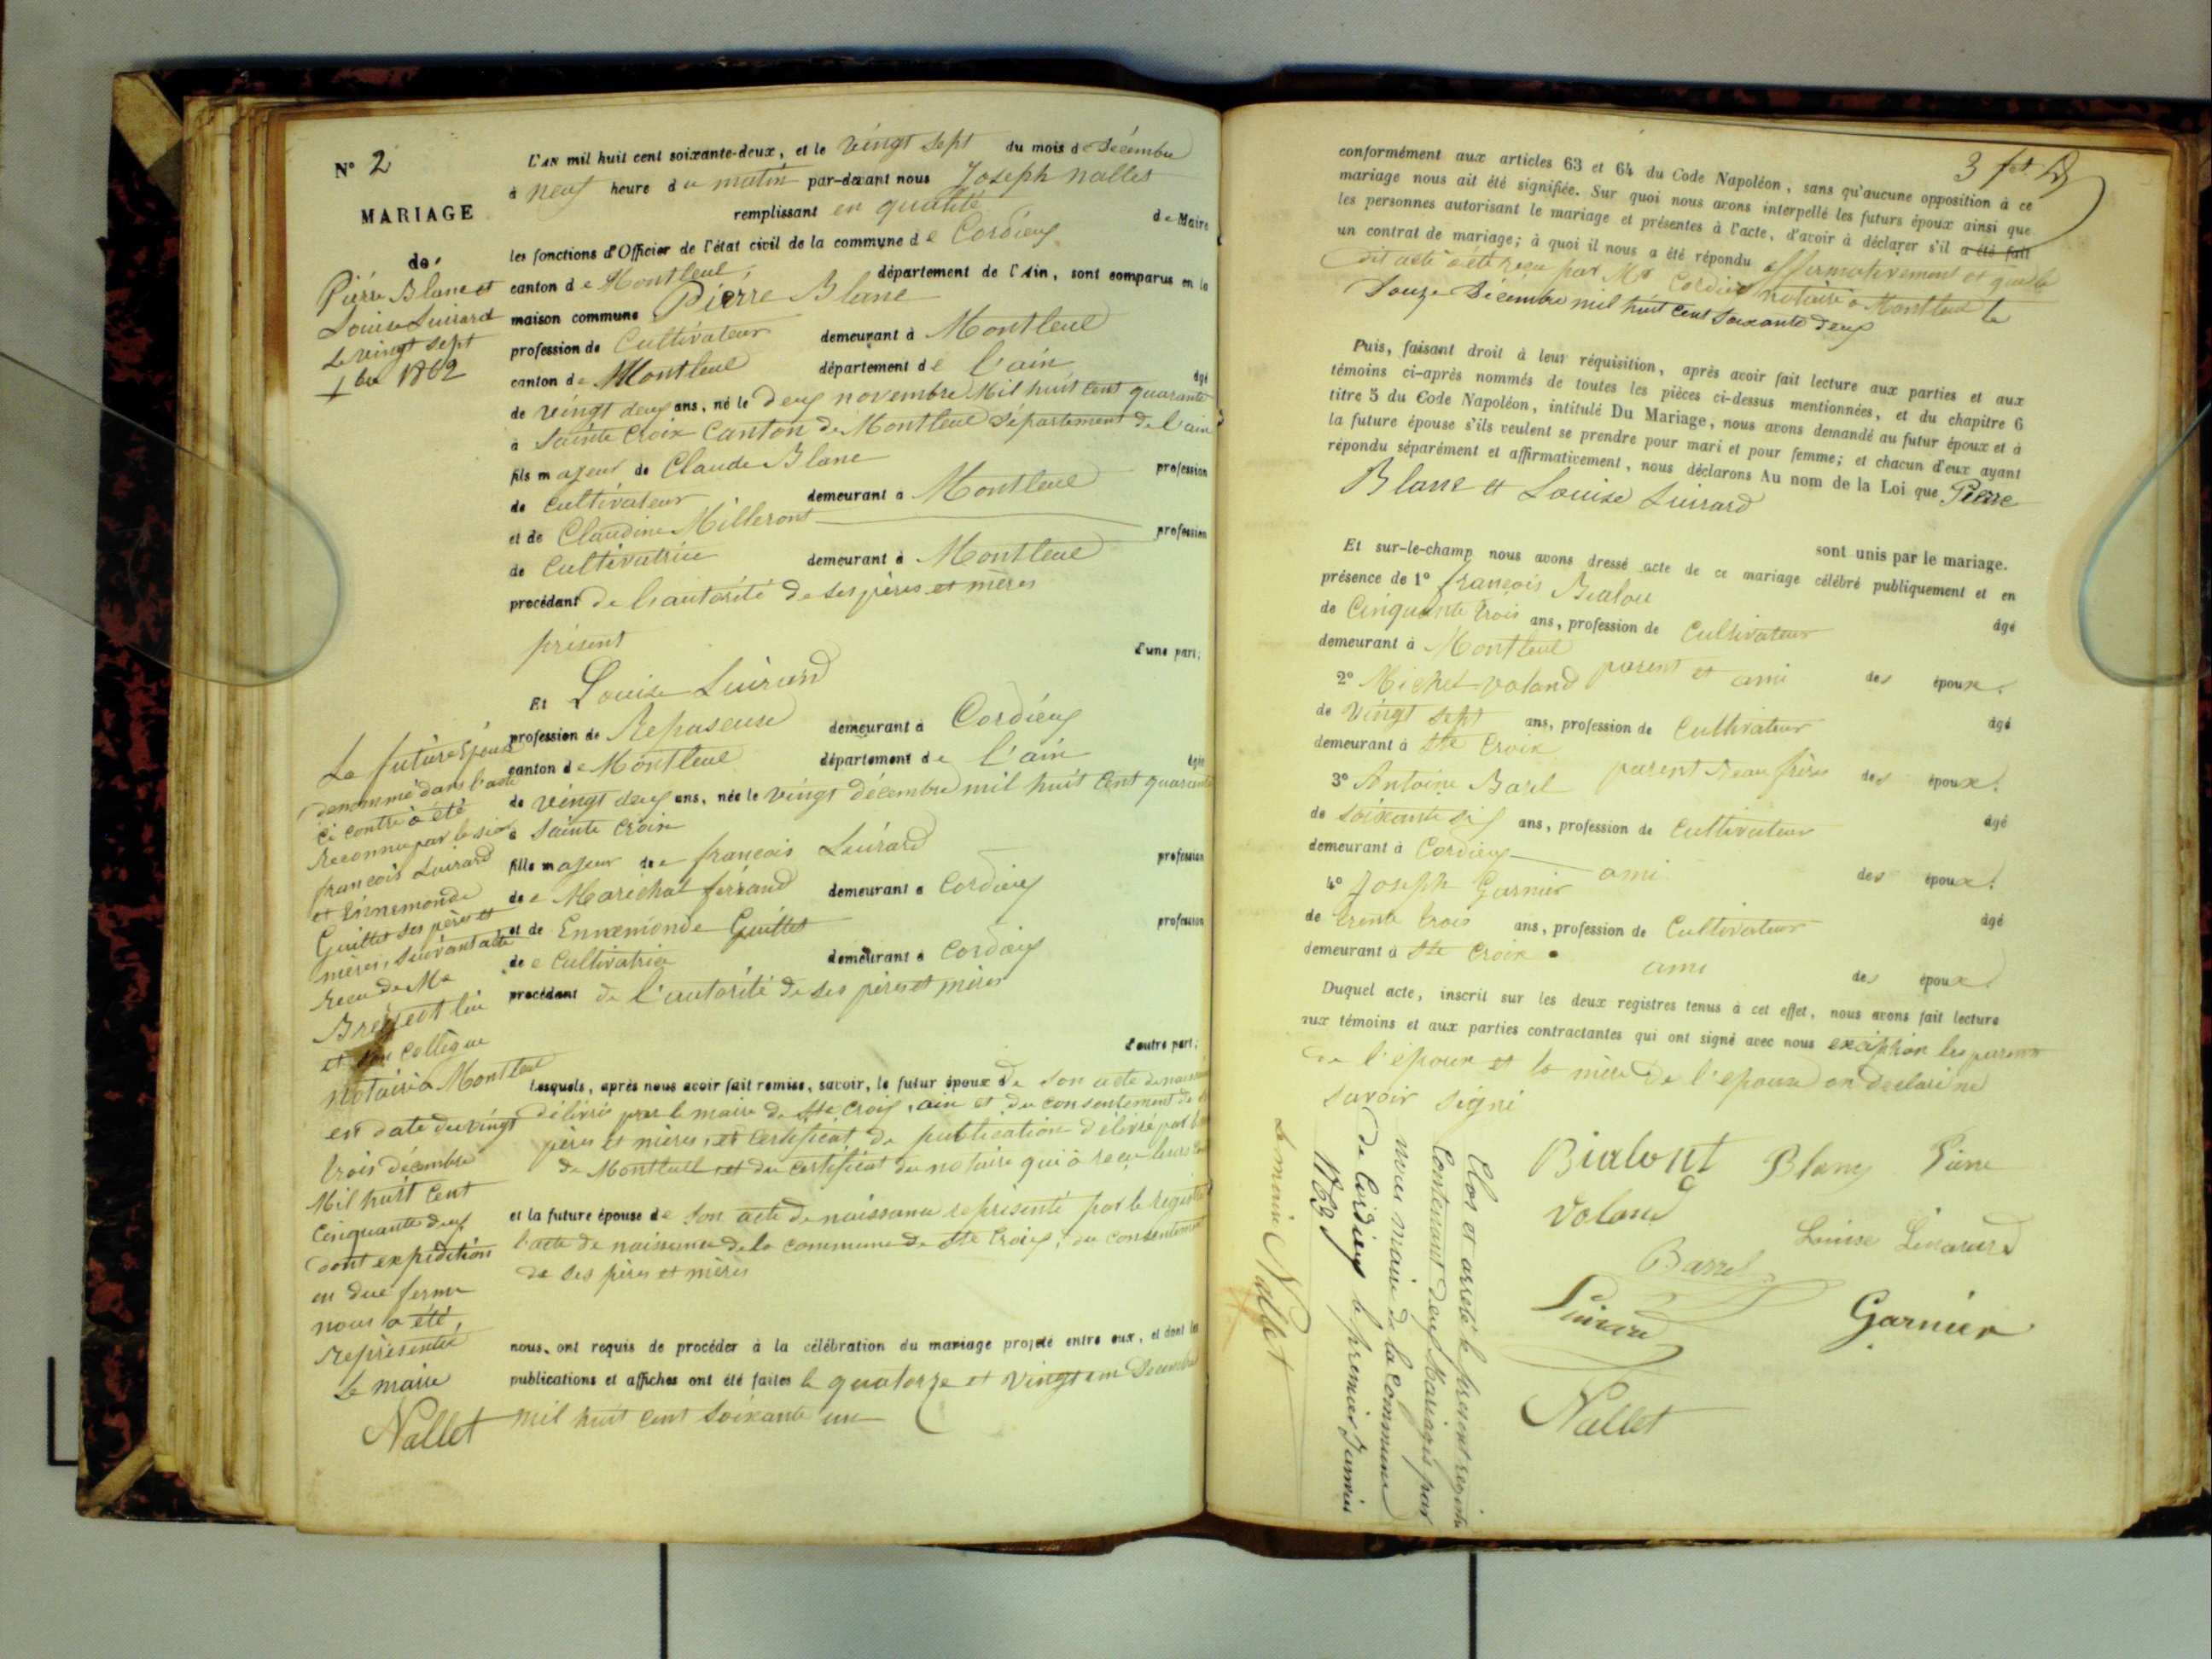 N° 2
MARIAGE
de
Pierre Blanc et
Louise Luirard
Le vingt sept
Xbre 1862
L'AN mil huit cent soixante-deux, et le vingt sept du mois de décembre
à neuf heure du matin par-devant nous Joseph nallet
remplissant en qualité de Maire
les fonctions d'Officier de l'état civil de la commune de Cordieux
canton de Montluel, département de l'Ain, sont comparus en la
maison commune Pierre Blanc
profession de Cultivateur demeurant à Montluel
canton de Montluel département de l'ain âgé
de vingt deux ans, né le deux novembre Mil huit cent quarante
à Sainte Croix Canton de Montluel département de l'ain
fils majeur de Claude Blanc profession
de Cultivateur demeurant à Montluel
et de Claudine Milleront profession
de Cultivatrice demeurant à Montluel
procédant de l'autorité de ses pères et mères
présent d'une part;
Et Louise Luirard
profession de Repaseuse demeurant à Cordieux
canton de Montluel département de l'ain âgée
de vingt deux ans, née le vingt décembre mil huit cent quarante
à Sainte Croix
fille majeur de françois Luirard profession
de Maréchal ferrand demeurant à Cordieux
et de Ennemonde Guillet profession
de Cultivatrice demeurant à Cordieux
procédant de l'autorité de ses pères et mères
d'autre part;
La future Epouse
denommé dans l'acte
ci contre à été
Reconnu par le sieur
françois Luirard
et Ennemonde
Guillet ses pères et
mères, suivant acte
Recu de Me
et son Collègue
notaire à Montluel
en date du vingt
trois décembre
Mil huit cent
Cinquante deux
dont expédition
en due forme
nous a été,
représentée
Le maire
Nallet
Lesquels, après nous avoir fait remise, savoir, le futur époux de son acte de naissance
délivré par le maire de Ste Croix, ain et du consentement de
pères et mères, et certificat de publication délivré par
de Montluel et du certificat du notaire qui à reçu leurs
et la future épouse de son acte de naissance représenté par le registre
l'acte de naissance de la commune de Ste Croix, du consentement
de ses pères et mères
nous ont requis de procéder à la célébration du mariage projeté entre eux, et dont les
publications et affiches ont été faites le quatorze et vingt un Decembre
mil huit cent soixante un
conformément aux articles 63 et 64 du Code Napoléon, sans qu'aucune opposition à ce
mariage nous ait été signifiée. Sur quoi nous avons interpellé les futurs époux ainsi que
les personnes autorisant le mariage et présentes à l'acte, d'avoir à déclarer s'il a été fait
un contrat de mariage; à quoi il nous a été répondu affirmativement et que le
dit acte a été reçu par Me Cordier notaire à Montluel le
Douze Décembre mil huit cent soixante deux
Puis, faisant droit à leur réquisition, après avoir fait lecture aux parties et aux
témoins ci-après nommés de toutes les pièces ci-dessus mentionnées, et du chapitre 6
titre 5 du Code Napoléon, intitulé Du Mariage, nous avons demandé au futur époux et à
la future épouse s'ils veulent se prendre pour mari et pour femme; et chacun d'eux ayant
répondu séparément et affirmativement, nous déclarons Au nom de la Loi que Pierre
Blanc et Louise Luirard
sont unis par le mariage.
Et sur-le-champ nous avons dressé acte de ce mariage célébré publiquement et en
présence de 1° françois Bialou âgé
de Cinquante trois ans, profession de Cultivateur
demeurant à Montluel parent et ami des époux.
2° Michel voland âgé
de vingt sept ans, profession de Cultivateur
demeurant à Ste Croix parent Beau frère des époux.
3° Antoine Barel âgé
de soixante six ans, profession de Cultivateur
demeurant à Cordieux ami des époux.
4° Joseph Garnier âgé
de trente trois ans, profession de Cultivateur
demeurant à Ste Croix ami des époux.
Duquel acte, inscrit sur les deux registres tenus à cet effet, nous avons fait lecture
aux témoins et aux parties contractantes qui ont signé avec nous exception les parents
de l'époux et la mère de l'epouse on declaré ne
savoir signé
Bialont Blanc Pierre
Voland Louise Luirard
Barrel
Luirard Garnier
Nallet
Clos et arreté le présent registre
Contenant deux Mariages par
nous maire de la Commune
de Cordieux le premier Janvier
1863
Le maire Nallet